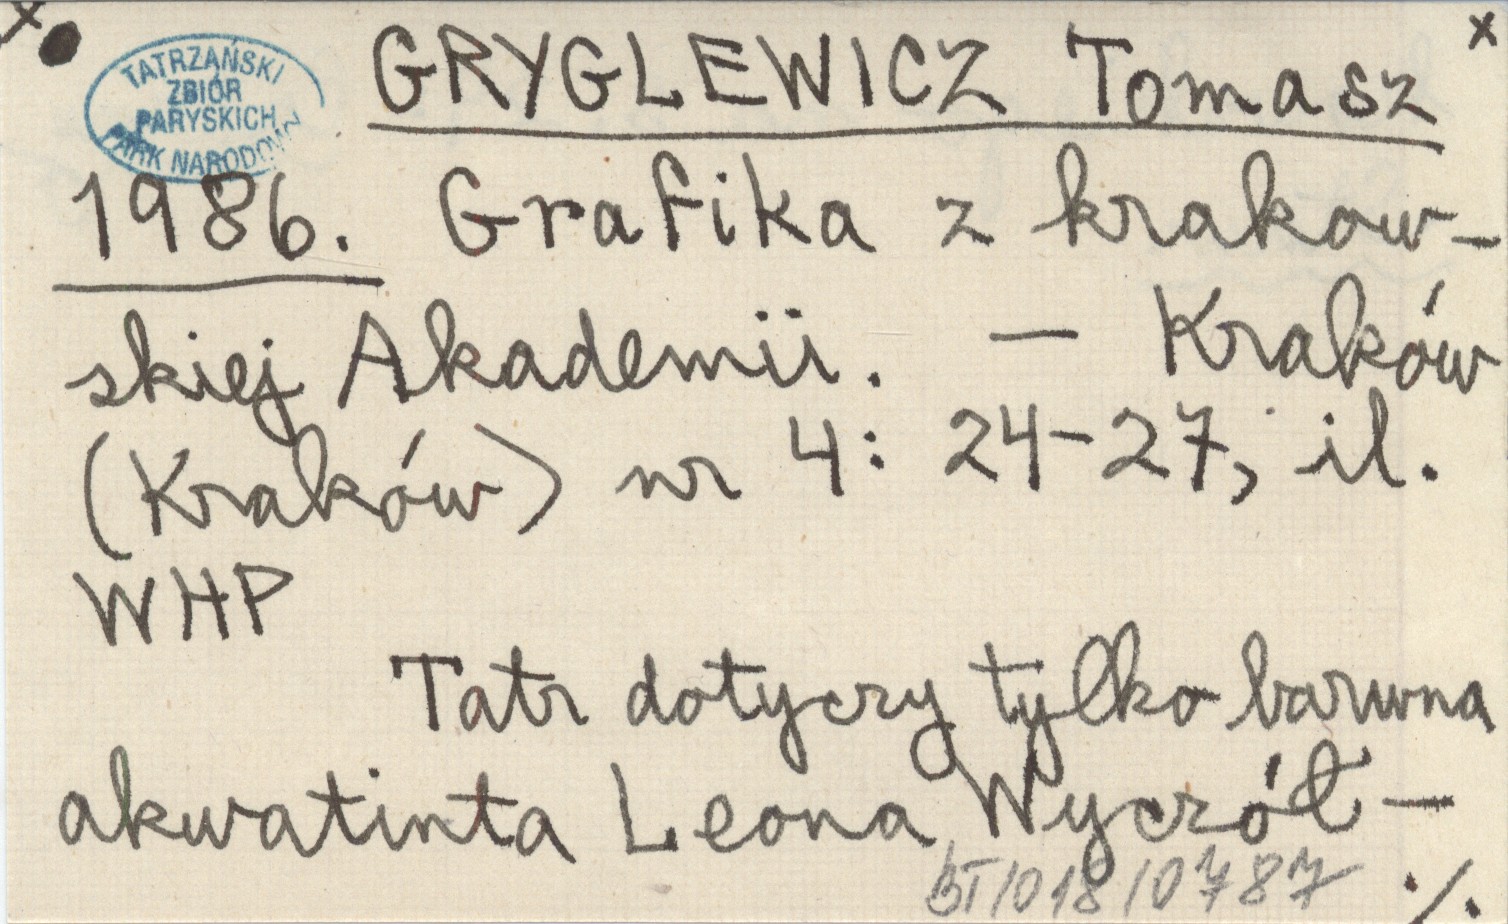 x
x
TATRZAŃSKI
ZBIÓR
PARYSKICH
PARK NARODOWY
GRYGLEWICZ Tomasz
1986. Grafika z krakow-
skiej Akademii. — Kraków
(Kraków) nr 4: 24-27, il.
WHP
Tatr dotyczy tylko barwna
akwatinta Leona Wyczół-
BT/018/0787
./.